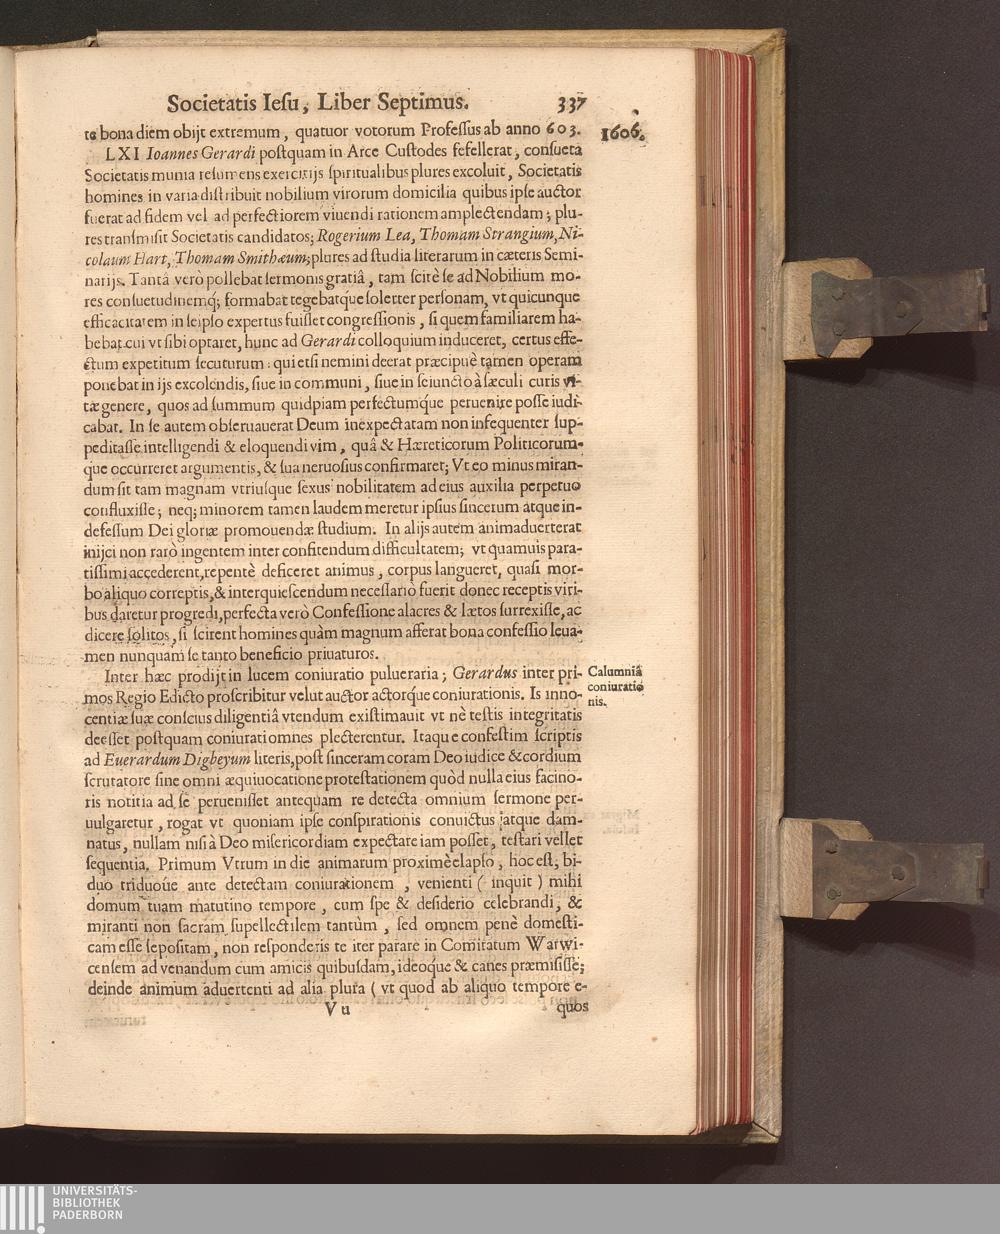 Societatis Iesu, Liber Septimus. 337
te bona diem obijt extremum, quatuor votorum Professus ab anno 603. 1606.
LXI Ioannes Gerardi postquam in Arce Custodes fefellerat, consueta
Societatis munia resumens exercitijs spiritualibus plures excoluit, Societatis
homines in varia distribuit nobilium virorum domicilia quibus ipse auctor
fuerat ad fidem vel ad perfectiorem viuendi rationem amplectendam; plu-
res transmisit Societatis candidatos; Rogerium Lea, Thomam Strangium, Ni-
colaum Hart, Thomam Smithæum; plures ad studia literarum in cæteris Semi-
narijs. Tantâ verò pollebat sermonis gratiâ, tam scitè se ad Nobilium mo-
res consuetudinemq́; formabat tegebatque solerter personam, vt quicunque
efficacitatem in seipso expertus fuisset congressionis, si quem familiarem ha-
bebat cui vt sibi optaret, hunc ad Gerardi colloquium induceret, certus effe-
ctum expetitum secuturum: qui etsi nemini deerat præcipuè tamen operam
ponebat in ijs excolendis, siue in communi, siue in seiuncto à sæculi curis vi-
tæ genere, quos ad summum quidpiam perfectumq́ue peruenire posse iudi-
cabat. In se autem obseruauerat Deum inexpectatam non infequenter sup-
peditasse intelligendi & eloquendi vim, quâ & Hæreticorum Politicorum-
que occurreret argumentis, & sua neruosius confirmaret; Vt eo minus miran-
dum sit tam magnam vtriusque sexus nobilitatem ad eius auxilia perpetuo
confluxisse; neq; minorem tamen laudem meretur ipsius sincerum atque in-
defessum Dei gloriæ promouendæ studium. In alijs autem animaduerterat
inijci non rarò ingentem inter confitendum difficultatem; vt quamuis para-
tissimi accederent, repentè deficeret animus, corpus langueret, quasi mor-
bo aliquo correptis, & interquiescendum necessariò fuerit donec receptis viri-
bus daretur progredi, perfecta verò Confessione alacres & lætos surrexisse, ac
dicere solitos, si scirent homines quàm magnum afferat bona confessio leua-
men nunquam se tanto beneficio priuaturos.
Inter hæc prodijt in lucem coniuratio pulueraria; Gerardus inter pri-
mos Regio Edicto proscribitur velut auctor actorq́ue coniurationis. Is inno-
centiæ suæ conscius diligentiâ vtendum existimauit vt nè testis integritatis
deesset postquam coniurati omnes plecterentur. Itaque confestim scriptis
ad Euerardum Digbeyum literis, post sinceram coram Deo iudice & cordium
scrutatore sine omni æquiuocatione protestationem quòd nulla eius facino-
ris notitia ad se peruenisset antequam re detecta omnium sermone per-
uulgaretur, rogat vt quoniam ipse conspirationis conuictus atque dam-
natus, nullam nisi à Deo misericordiam expectare iam posset, testari vellet
sequentia. Primum Vtrum in die animarum proximè elapso, hoc est, bi-
duo triduoúe ante detectam coniurationem, venienti (inquit) mihi
domum tuam matutino tempore, cum spe & desiderio celebrandi, &
miranti non sacram supellectilem tantùm, sed omnem penè domesti-
cam esse sepositam, non responderis te iter parare in Comitatum Warwi-
censem ad venandum cum amicis quibusdam, ideoq́ue & canes præmisisse;
deinde animum aduertenti ad alia plura (vt quod ab aliquo tempore e-
V u quos
Calumniâ
coniuratio
nis.
UNIVERSITÄTS-
BIBLIOTHEK
PADERBORN